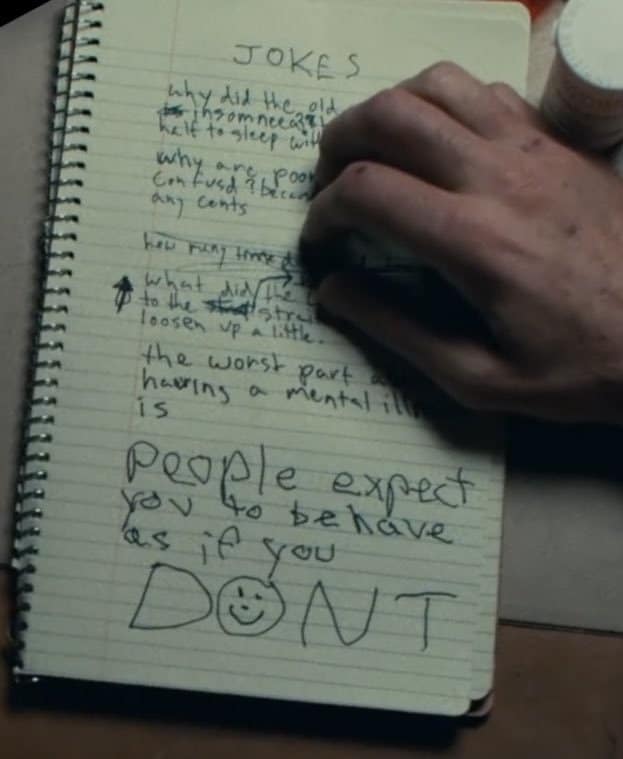 JOKES
why did the old
insomneea
half to sleep with
why are poor
confusd? becau
any cents
how many
what did the
to the strai
loosen up a little.
the worst part a
having a mental ill
is
people expect
you to behave
as if you
DONT